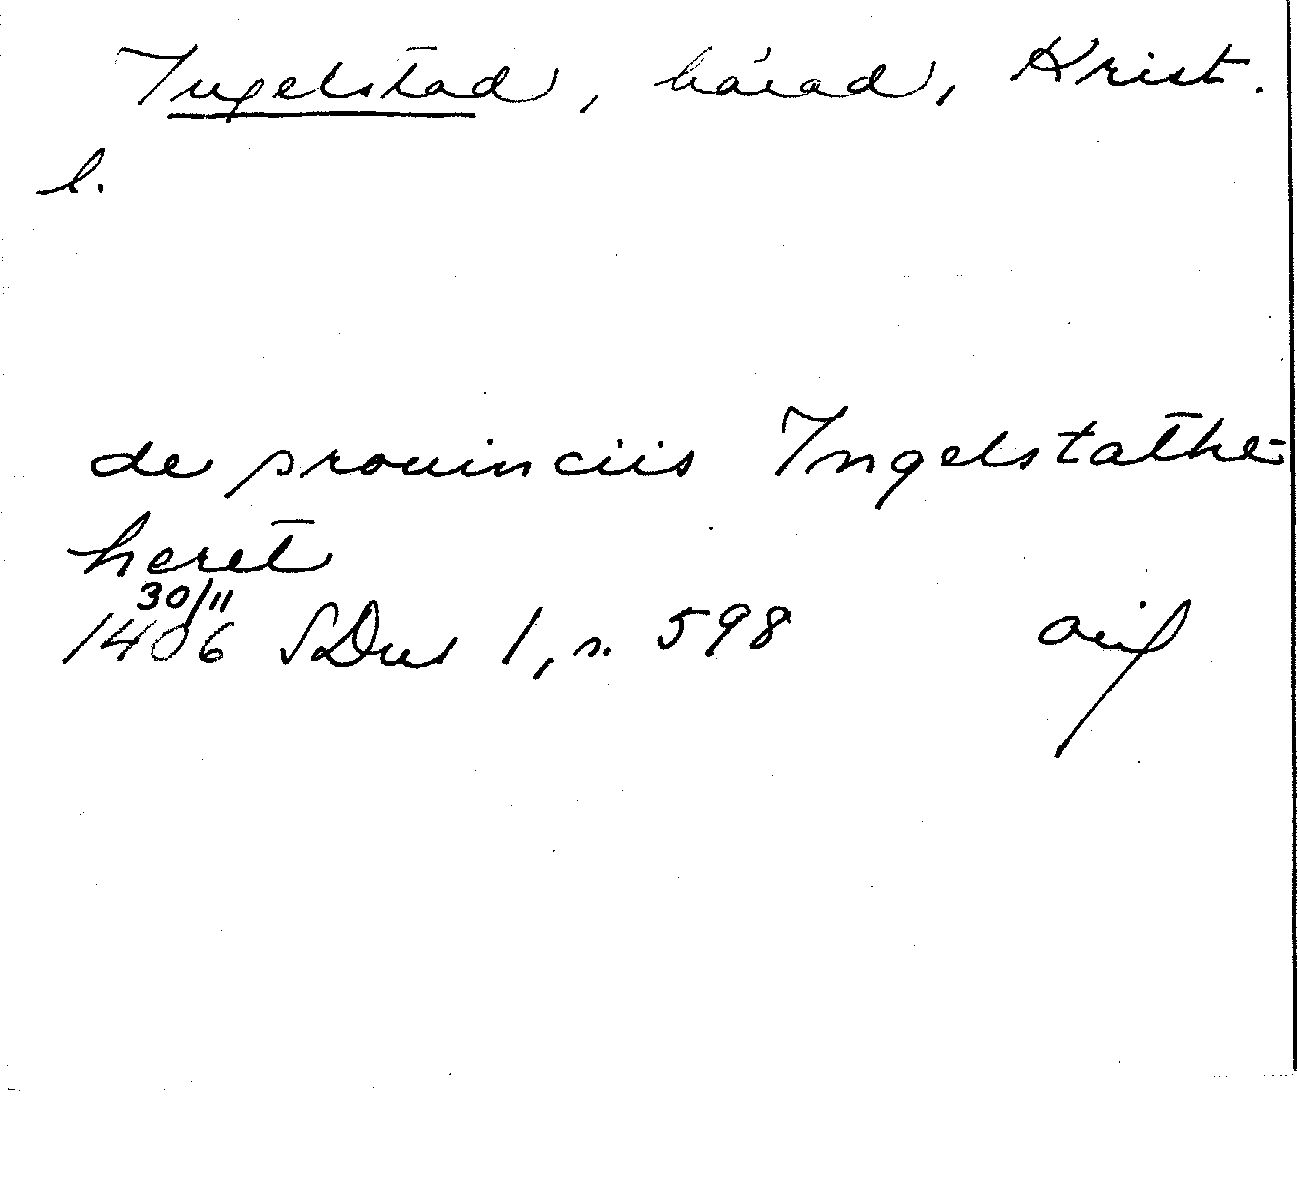 Ingelstad, härad, Krist.
l.
de prouinciis Ingelstathe-
heret
30/11
1406 SDns 1, s. 598 orig